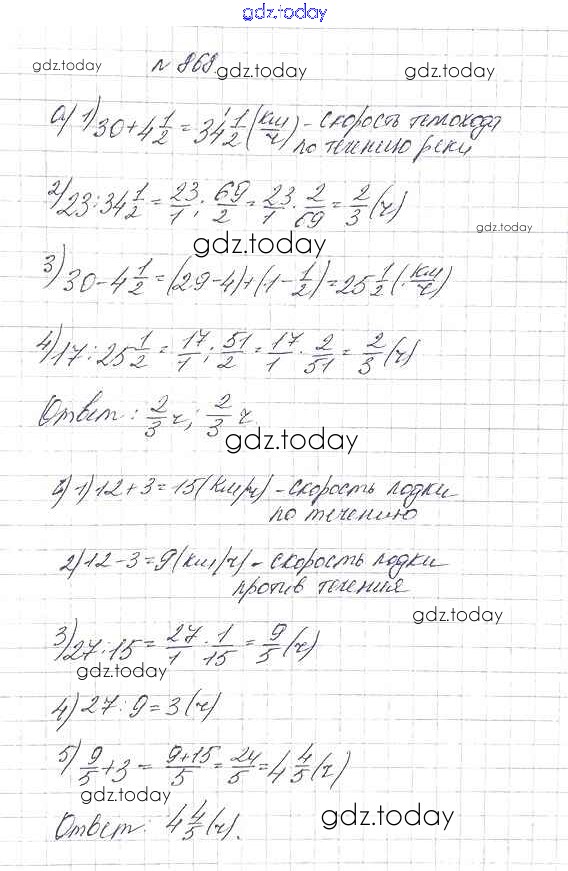 gdz.today
№ 868
gdz.today gdz.today gdz.today
а) 1) 30 + 4 1/2 = 34 1/2 (км/ч) - скорость теплохода
по течению реки
2) 23 : 34 1/2 = 23/1 : 69/2 = 23/1 · 2/69 = 2/3 (ч)
gdz.today
gdz.today
3) 30 - 4 1/2 = (29-4)+(1 - 1/2) = 25 1/2 (км/ч)
4) 17 : 25 1/2 = 17/1 : 51/2 = 17/1 · 2/51 = 2/3 (ч)
Ответ: 2/3 ч; 2/3 ч
gdz.today
б) 1) 12 + 3 = 15 (км/ч) - скорость лодки
по течению
2) 12 - 3 = 9 (км/ч) - скорость лодки
против течения
gdz.today
3) 27 : 15 = 27/1 · 1/15 = 9/5 (ч)
gdz.today
4) 27 : 9 = 3 (ч)
5) 9/5 + 3 = 9+15/5 = 24/5 = 4 4/5 (ч)
gdz.today
Ответ: 4 4/5 (ч).
gdz.today